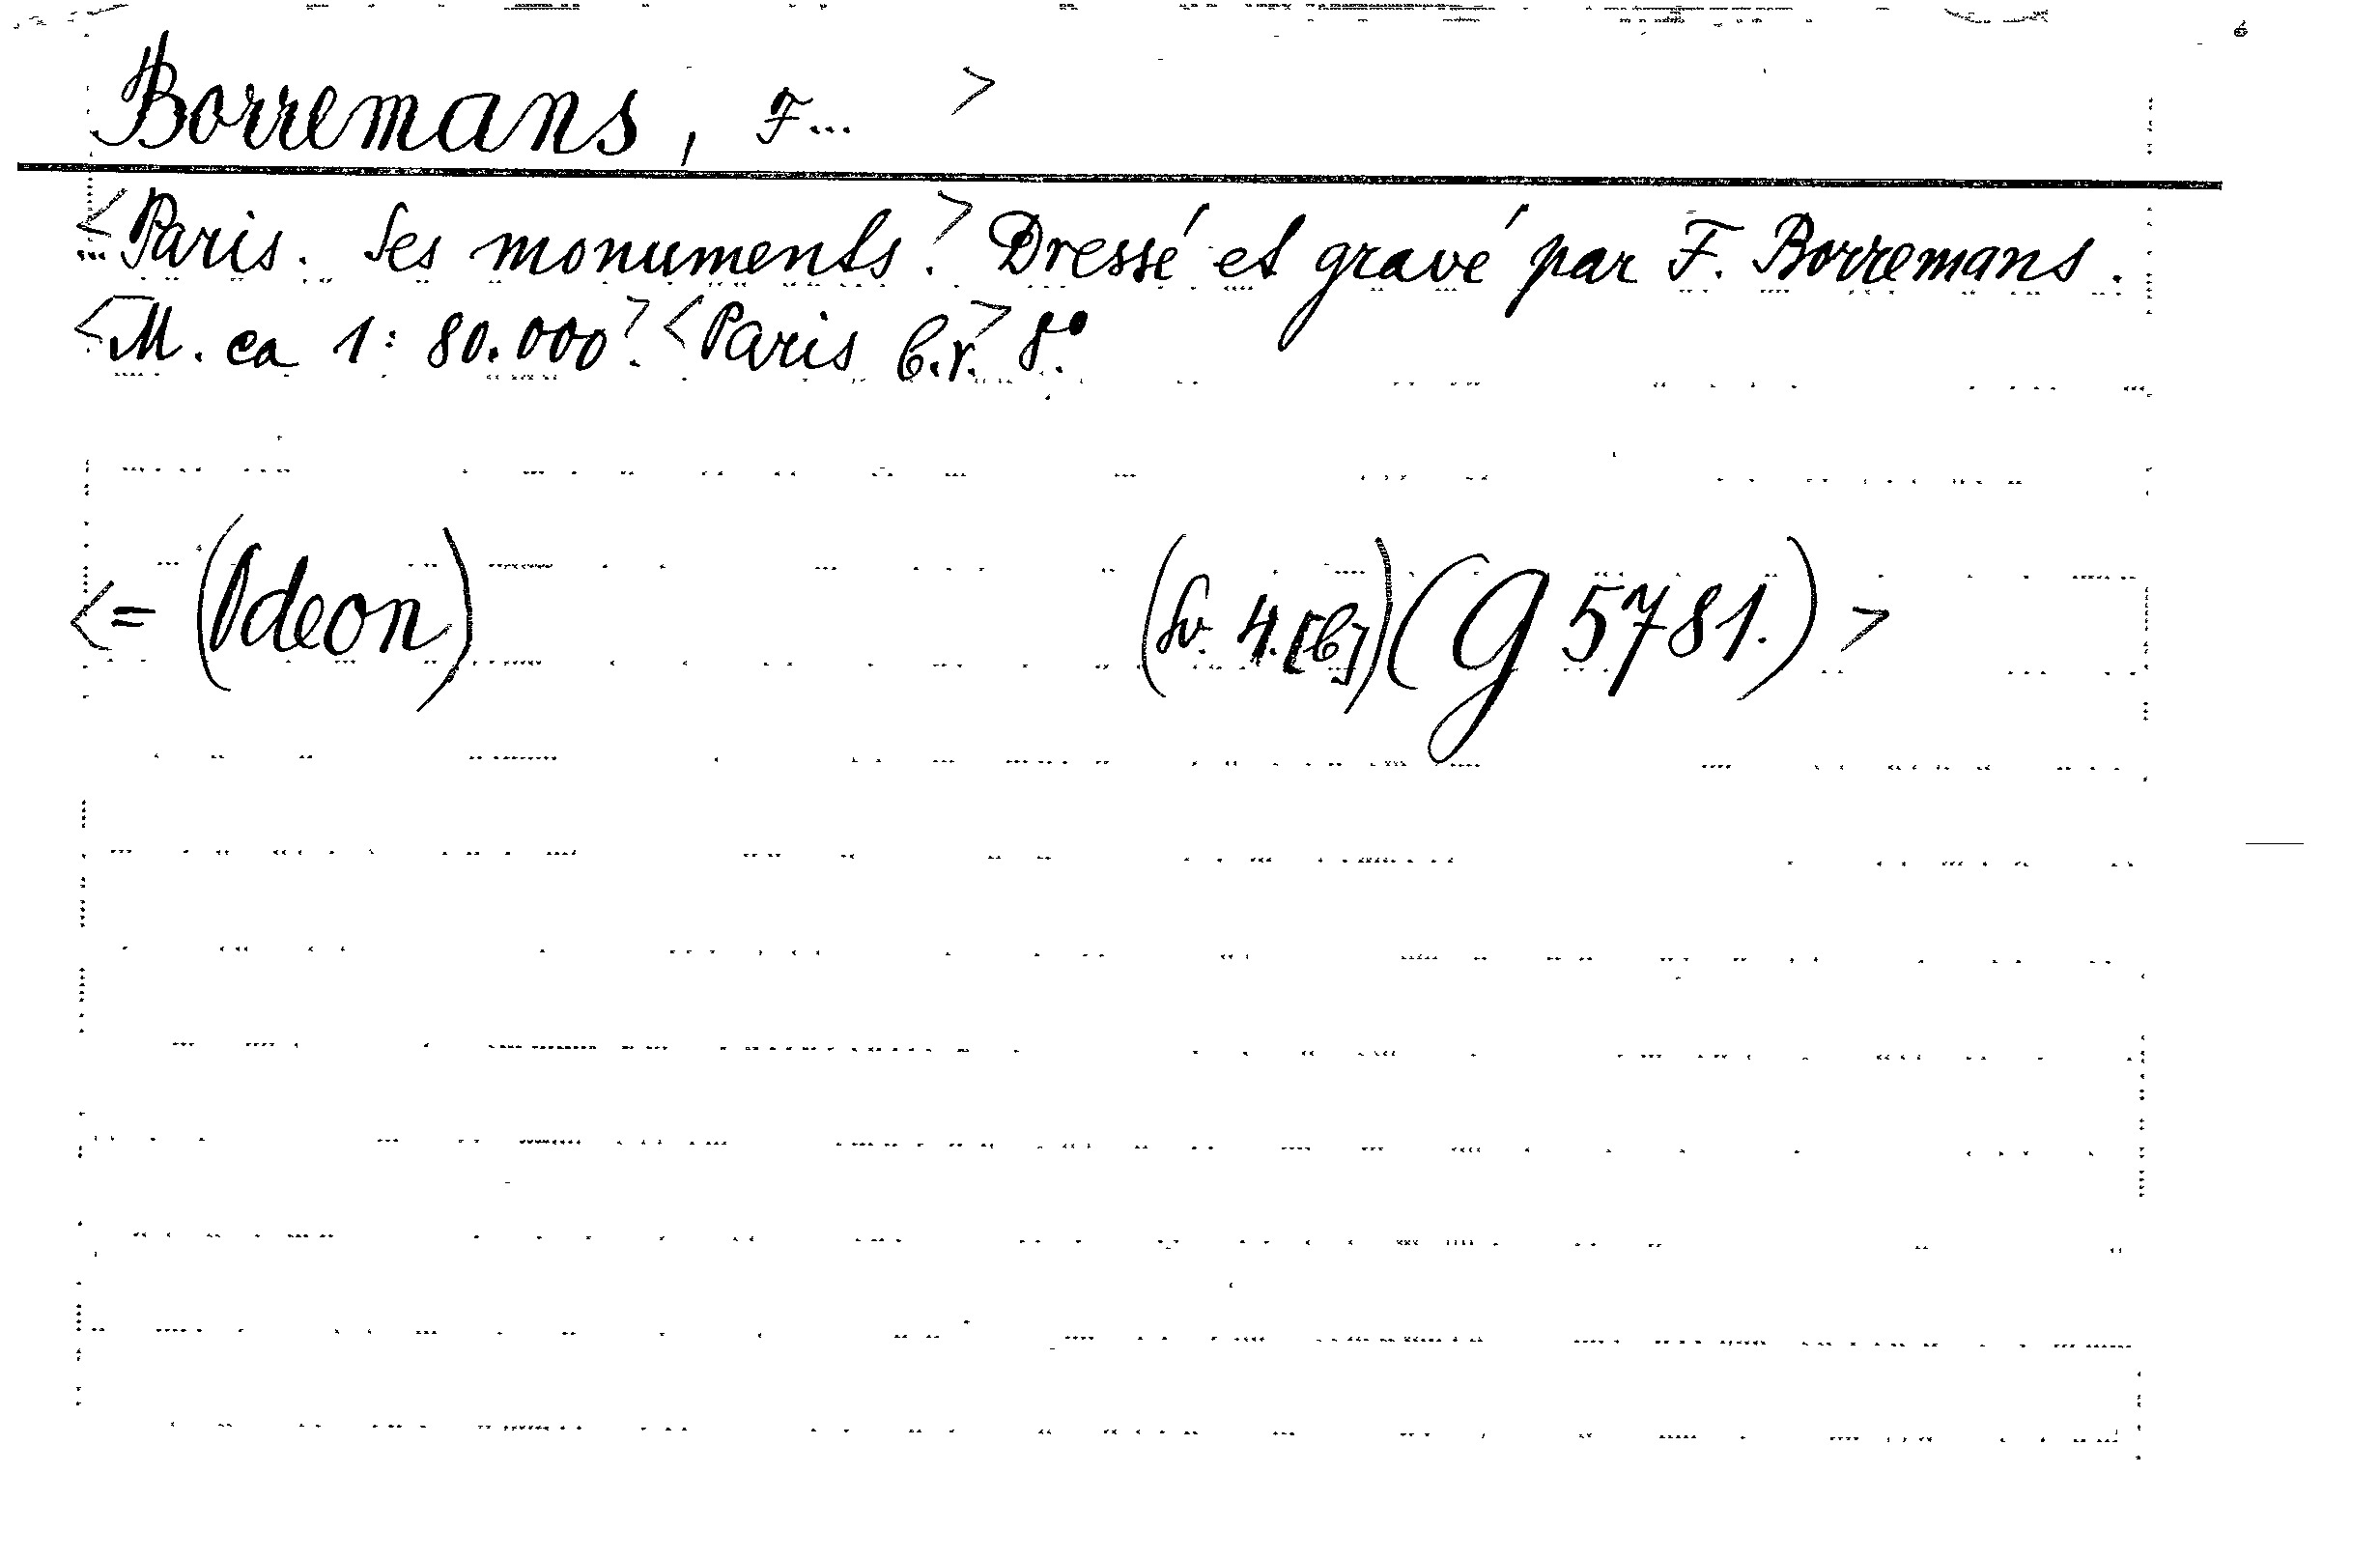 Borremans, F... >
<Paris. Ses monuments.> Dressé et gravé par F. Borremans.
<M. ca 1:80.000.> <Paris b.r.> 8°.
<= (Odeon) (Sv. 4.[b]) (G 5781.) >